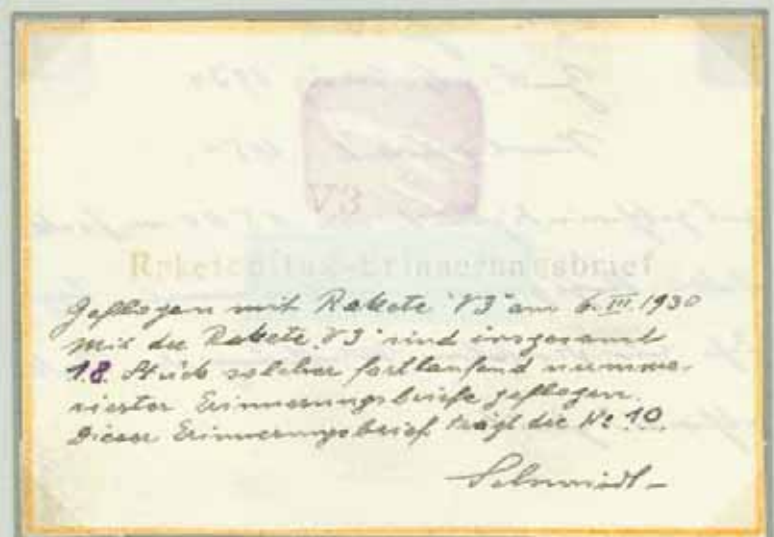 V3
Raketenflug-Erinnerungsbrief
Geflogen mit Rakete "V3" am 6.III.1930
Mit der Rakete "V3" sind insgesamt
18 Stück solcher fortlaufend numme-
rierter Erinnerungsbriefe geflogen.
Dieser Erinnerungsbrief trägt die No 10.
Schmiedl